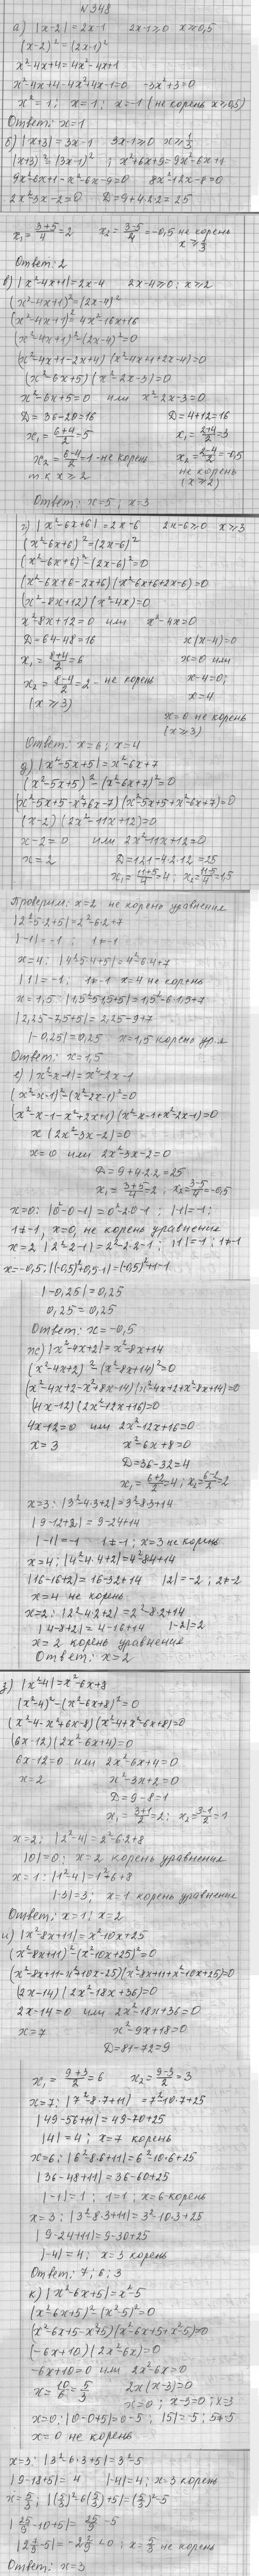 N 348
а) |x-2| = 2x-1   2x-1≥0  x≥0,5
(x-2)² = (2x-1)²
x²-4x+4 = 4x²-4x+1
x²-4x+4-4x²+4x-1=0   -3x²+3=0
x²=1;  x=1;  x=-1 (не корень x≥0,5)
Ответ: x=1
б) |x+3| = 3x-1   3x-1≥0  x≥1/3
(x+3)² = (3x-1)²;  x²+6x+9=9x²-6x+1
9x²-6x+1-x²-6x-9=0   8x²-12x-8=0
2x²-3x-2=0   D=9+4·2·2=25
x₁=(3+5)/4=2   x₂=(3-5)/4=-0,5 не корень
x≥1/3
Ответ: 2
в) |x²-4x+1|=2x-4   2x-4≥0; x≥2
(x²-4x+1)²=(2x-4)²
(x²-4x+1)²=4x²-16x+16
(x²-4x+1)²-(2x-4)²=0
(x²-4x+1-2x+4)(x²-4x+1+2x-4)=0
(x²-6x+5)(x²-2x-3)=0
x²-6x+5=0  или  x²-2x-3=0
D=36-20=16   D=4+12=16
x₁=(6+4)/2=5   x₁=(2+4)/2=3
x₂=(6-4)/2=1 - не корень   x₂=(2-4)/2=-0,5
т.к x≥2   не корень
(x≥2)
Ответ: x=5; x=3
г) |x²-6x+6|=2x-6   2x-6≥0  x≥3
(x²-6x+6)²=(2x-6)²
(x²-6x+6)²-(2x-6)²=0
(x²-6x+6-2x+6)(x²-6x+6+2x-6)=0
(x²-8x+12)(x²-4x)=0
x²-8x+12=0  или  x²-4x=0
D=64-48=16   x(x-4)=0
x₁=(8+4)/2=6   x=0 или
x₂=(8-4)/2=2 - не корень   x-4=0;
(x≥3)   x=4
x=0 не корень
(x≥3)
Ответ: x=6; x=4
д) |x²-5x+5|=x²-6x+7
(x²-5x+5)²-(x²-6x+7)²=0
(x²-5x+5-x²+6x-7)(x²-5x+5+x²-6x+7)=0
(x-2)(2x²-11x+12)=0
x-2=0  или  2x²-11x+12=0
x=2   D=121-4·2·12=25
x₁=(11+5)/4=4; x₂=(11-5)/4=1,5
Проверим: x=2 не корень уравнения
|2²-5·2+5|=2²-6·2+7
|-1|=-1;  1≠-1
x=4; |4²-5·4+5|=4²-6·4+7
|1|=-1;  1≠-1  x=4 не корень
x=1,5; |1,5²-5·1,5+5|=1,5²-6·1,5+7
|2,25-7,5+5|=2,25-9+7
|-0,25|=0,25  x=1,5 корень ур.я
Ответ: x=1,5
е) |x²-x-1|=x²-2x-1
(x²-x-1)²-(x²-2x-1)²=0
(x²-x-1-x²+2x+1)(x²-x-1+x²-2x-1)=0
x(2x²-3x-2)=0
x=0 или 2x²-3x-2=0
D=9+4·2·2=25
x₁=(3+5)/4=2; x₂=(3-5)/4=-0,5
x=0: |0²-0-1|=0²-2·0-1; |-1|=-1;
1≠-1, x=0, не корень уравнения
x=2 |2²-2-1|=2²-2·2-1; |1|=-1; 1≠-1
x=-0,5; |(-0,5)²+0,5-1|=(-0,5)²+1-1
|-0,25|=0,25
0,25=0,25
Ответ: x=-0,5
ж) |x²-4x+2|=x²-8x+14
(x²-4x+2)²-(x²-8x+14)²=0
(x²-4x+2-x²+8x-14)(x²-4x+2+x²-8x+14)=0
(4x-12)(2x²-12x+16)=0
4x-12=0 или 2x²-12x+16=0
x=3   x²-6x+8=0
D=36-32=4
x₁=(6+2)/2=4; x₂=(6-2)/2=2
x=3: |3²-4·3+2|=3²-8·3+14
|9-12+2|=9-24+14
|-1|=-1  1≠-1; x=3 не корень
x=4; |4²-4·4+2|=4²-8·4+14
|16-16+2|=16-32+14  |2|=-2; 2≠-2
x=4 не корень
x=2: |2²-4·2+2|=2²-8·2+14
|4-8+2|=4-16+14  |-2|=2
x=2 корень уравнения
Ответ: x=2
з) |x²-4|=x²-6x+8
(x²-4)²-(x²-6x+8)²=0
(x²-4-x²+6x-8)(x²-4+x²-6x+8)=0
(6x-12)(2x²-6x+4)=0
6x-12=0 или 2x²-6x+4=0
x=2   x²-3x+2=0
D=9-8=1
x₁=(3+1)/2=2; x₂=(3-1)/2=1
x=2; |2²-4|=2²-6·2+8
|0|=0; x=2 корень уравнения
x=1: |1²-4|=1²-6+8
|-3|=3; x=1 корень уравнения
Ответ: x=1; x=2
и) |x²-8x+11|=x²-10x+25
(x²-8x+11)²-(x²-10x+25)²=0
(x²-8x+11-x²+10x-25)(x²-8x+11+x²-10x+25)=0
(2x-14)(2x²-18x+36)=0
2x-14=0 или 2x²-18x+36=0
x=7   x²-9x+18=0
D=81-72=9
x₁=(9+3)/2=6  x₂=(9-3)/2=3
x=7: |7²-8·7+11|=7²-10·7+25
|49-56+11|=49-70+25
|4|=4; x=7 корень
x=6; |6²-8·6+11|=6²-10·6+25
|36-48+11|=36-60+25
|-1|=1; 1=1; x=6 корень
x=3; |3²-8·3+11|=3²-10·3+25
|9-24+11|=9-30+25
|-4|=4; x=3 корень
Ответ: 7; 6; 3
к) |x²-6x+5|=x²-5
(x²-6x+5)²-(x²-5)²=0
(x²-6x+5-x²+5)(x²-6x+5+x²-5)=0
(-6x+10)(2x²-6x)=0
-6x+10=0 или 2x²-6x=0
x=10/6=5/3   2x(x-3)=0
x=0; x-3=0; x=3
x=0: |0-0+5|=0-5; |5|=-5; 5≠-5
x=0 не корень
x=3: |3²-6·3+5|=3²-5
|9-18+5|=4  |-4|=4; x=3 корень
x=5/3; |(5/3)²-6(5/3)+5|=(5/3)²-5
|25/9-10+5|=25/9-5
|2 7/9-5|=-2 2/9<0; x=5/3 не корень
Ответ: x=3